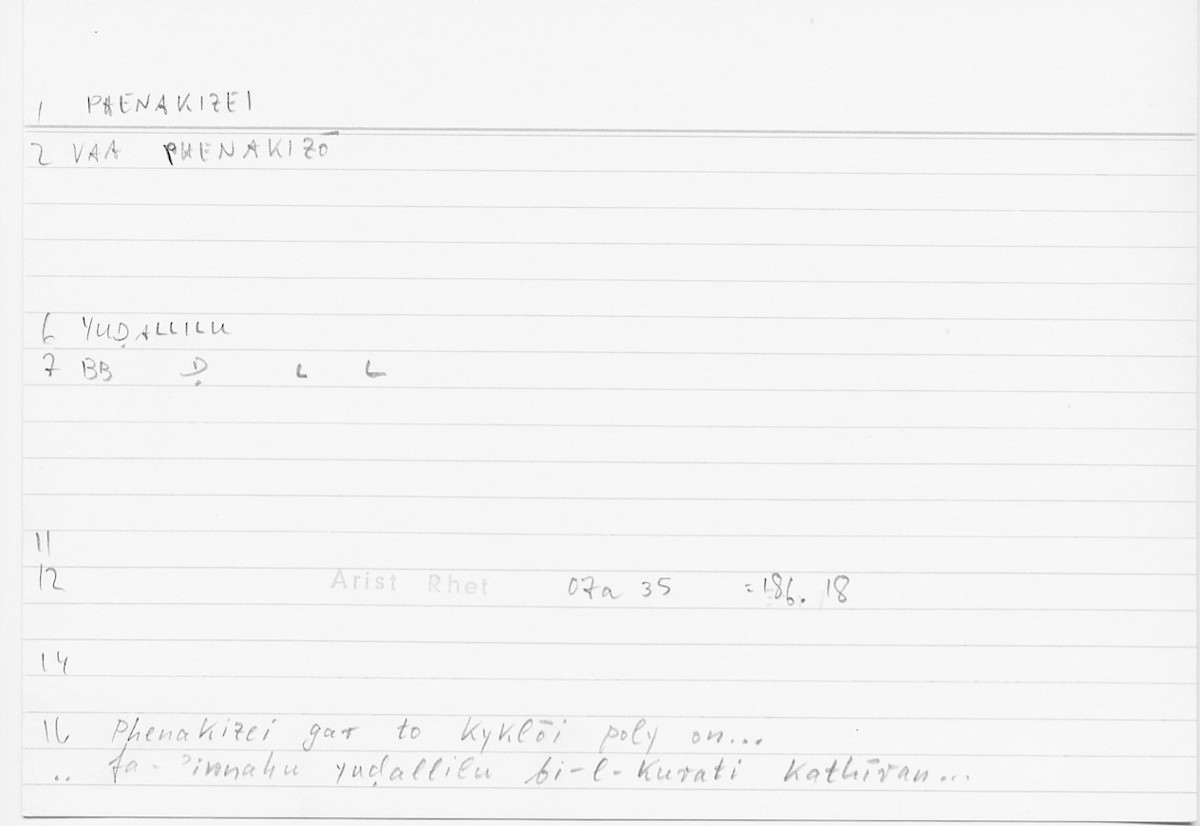 1 PHENAKIZEI
2 VAA PHENAKIZŌ
6 YUḌALLILU
7 BB Ḍ L L
11
12 Arist Rhet 07a 35 = 186. 18
14
16 Phenakizei gar to kyklōi poly on...
.. fa-ʾinnahu yuḍallilu bi-l-kurati kathīran...